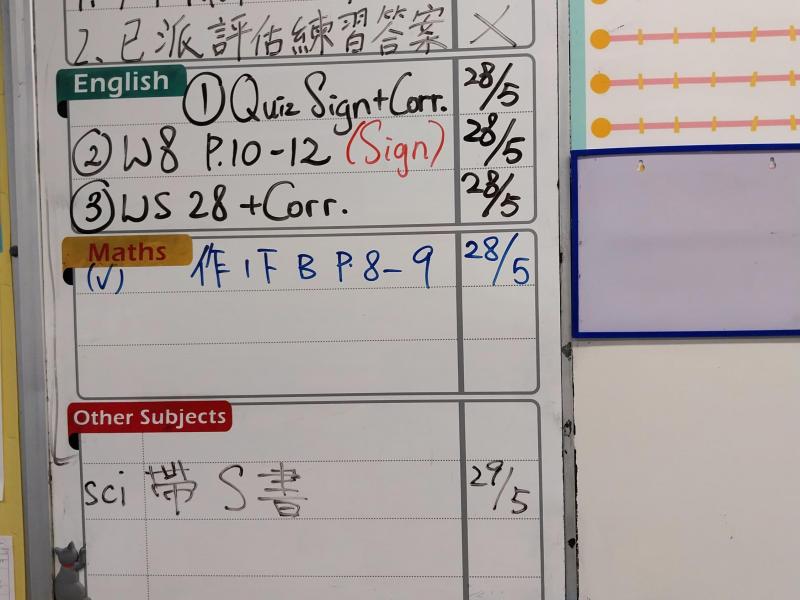 2、已派評估練習答案 ×
English
① Quiz Sign+Corr. 28/5
② W8 P.10-12 (Sign) 28/5
③ WS 28 +Corr. 28/5
Maths
(V) 作1下B P.8-9 28/5
Other Subjects
sci 帶 S 書 29/5